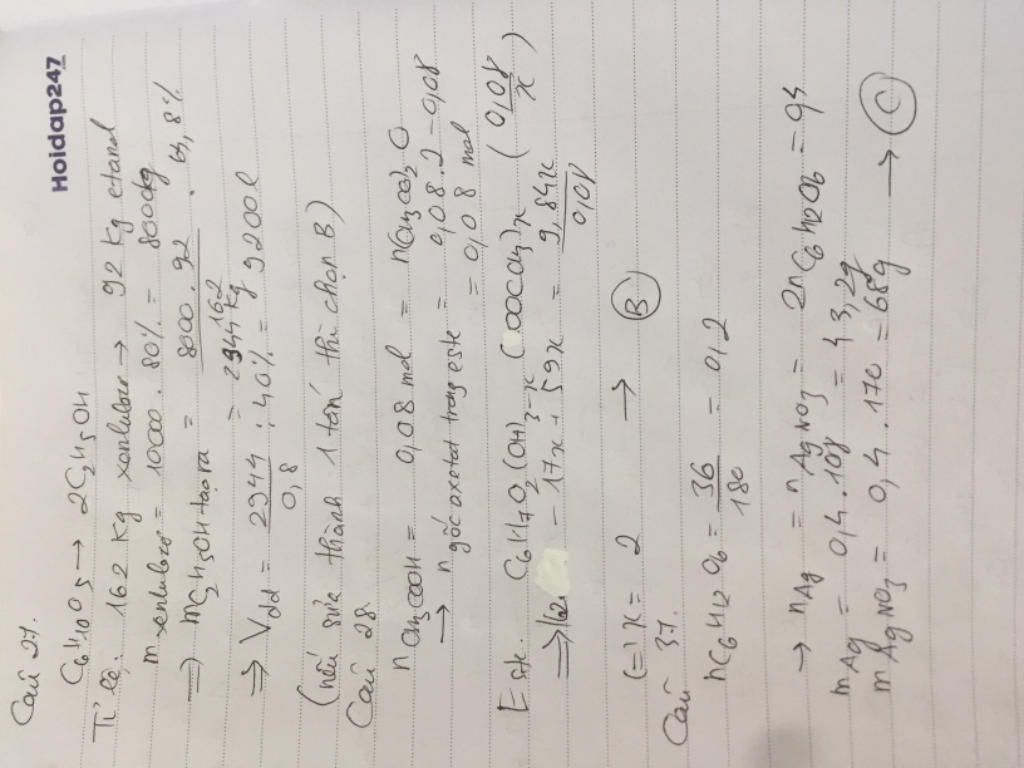 Hoidap247
Câu 27.
C6H10O5 → 2C2H5OH
Tỉ lệ: 162 kg xenlulozơ → 92 kg etanol
m xenlulozơ = 10000 . 80% = 8000kg
⇒ mC2H5OH tạo ra = 8000 . 92 / 162 . 64,8%
= 2944 kg
⇒ Vdd = 2944 / 0,8 : 40% = 9200 l
(nếu sửa thành 1 tấn thì chọn B)
Câu 28.
nCH3COOH = 0,08 mol = n(CH3CO)2O
→ n gốc axetat trong este = 0,08.2 - 0,08
= 0,08 mol
Este: C6H7O2(OH)3-x(OOCCH3)x (0,08/x)
⇒ 162 - 17x + 59x = 9,84x / 0,08
(=) x = 2 → (B)
Câu 37.
nC6H12O6 = 36/180 = 0,2
→ nAg = nAgNO3 = 2nC6H12O6 = 0,4
mAg = 0,4.108 = 43,2g
mAgNO3 = 0,4 . 170 = 68g → (C)